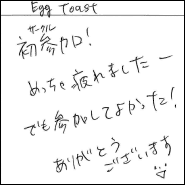 Egg Toast
サークル
初参加!
めっちゃ疲れましたー
でも参加してよかった!
ありがとう
ございます